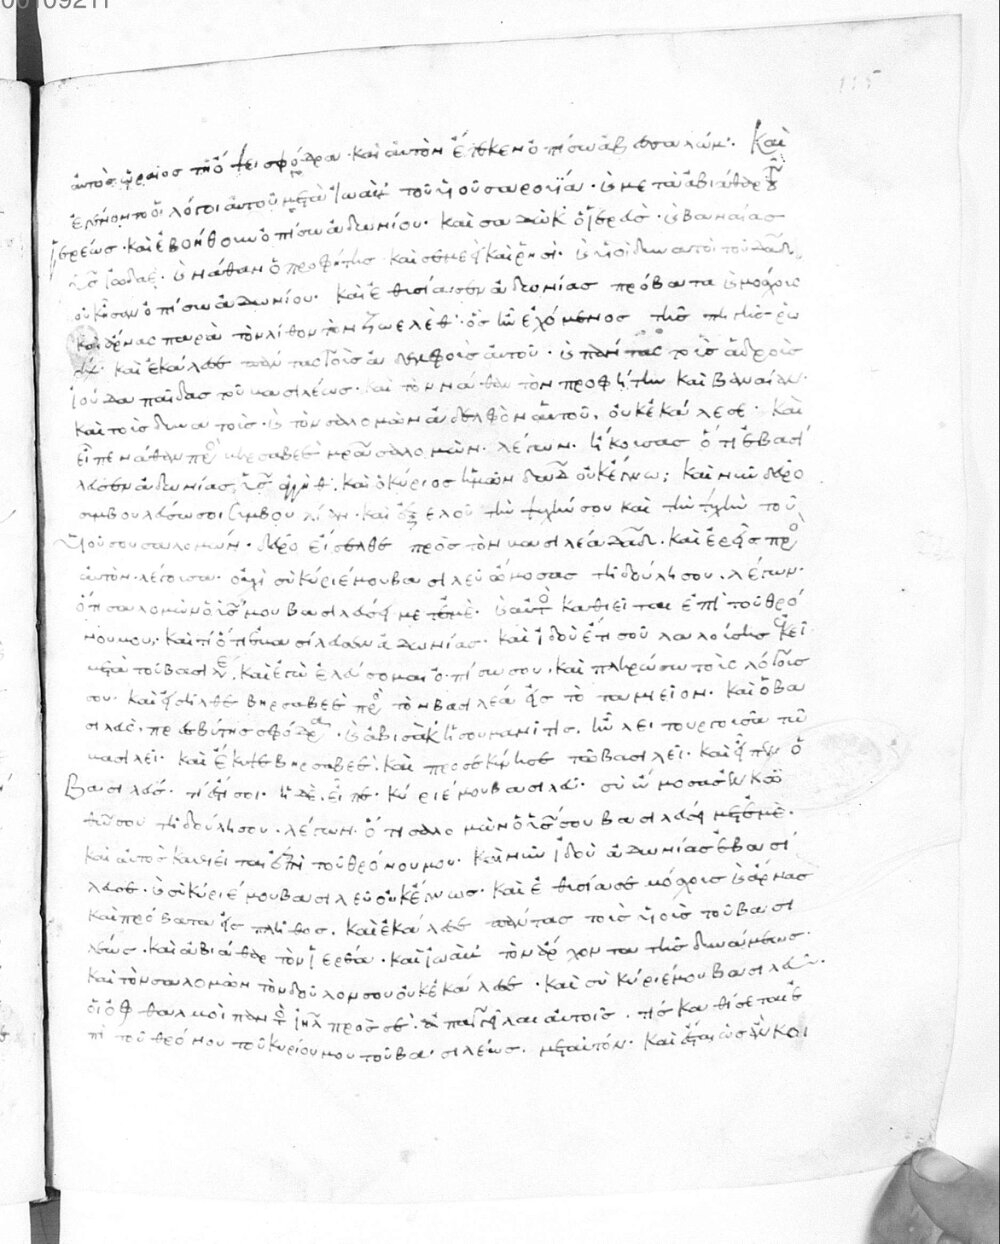 00109211
115
αὐτὸς ὡραῖος τῇ ὄψει σφόδρα· καὶ αὐτὸν ἔτεκεν ὀπίσω ἀβεσσαλώμ· Καὶ
ἐγένοντο οἱ λόγοι αὐτοῦ μετὰ ἰωὰβ τοῦ υἱοῦ σαρουΐας· καὶ μετὰ ἀβιάθαρ τοῦ
ἱερέως· καὶ ἐβοήθουν ὀπίσω ἀδωνίου· καὶ σαδὼκ ὁ ἱερεὺς· καὶ βαναίας
υἱὸς ἰωδαὲ· καὶ νάθαν ὁ προφήτης καὶ σεμεῒ καὶ ῥησὶ· καὶ υἱοὶ δυνατοὶ τοῦ δαδ
οὐκ ἦσαν ὀπίσω ἀδωνίου· καὶ ἐθυσίασεν ἀδωνίας πρόβατα καὶ μόσχους
καὶ ἄρνας παρὰ τὸν λίθον τὸν ζωελὲθ· ὃς ἦν ἐχόμενος τῆς πηγῆς ῥω
γὴλ· καὶ ἐκάλεσε πάντας τοὺς ἀδελφοὺς αὐτοῦ· καὶ πάντας τοὺς ἁδροὺς
ἰούδα παῖδας τοῦ βασιλέως· καὶ τὸν νάθαν τὸν προφήτην καὶ βαναίαν
καὶ τοὺς δυνατοὺς· καὶ τὸν σολομῶν ἀδελφὸν αὐτοῦ, οὐκ ἐκάλεσε· Καὶ
εἶπε νάθαν πρὸς βηρσαβεὲ μητέρα σολομῶν· λέγων· ἤκουσας ὅτι ἐβασί
λευσεν ἀδωνίας υἱὸς ἀγγὶθ· καὶ ὁ κύριος ἡμῶν δαυὶδ οὐκ ἔγνω; καὶ νῦν δεῦρο
συμβουλεύσω σοι συμβουλίαν· καὶ ἐξελοῦ τὴν ψυχήν σου καὶ τὴν ψυχὴν τοῦ
υἱοῦ σου σολομών· δεῦρο εἴσελθε πρὸς τὸν βασιλέα δαδ· καὶ ἐρεῖς πρὸς
αὐτὸν λέγουσα· οὐχὶ σὺ κύριέ μου βασιλεῦ ὤμοσας τῇ δούλῃ σου, λέγων·
ὅτι σολομὼν ὁ υἱός μου βασιλεύσει μετ' ἐμὲ· καὶ αὐτὸς καθιεῖται ἐπὶ τοῦ θρό
νου μου· καὶ τί ὅτι ἐβασίλευσεν ἀδωνίας· καὶ ἰδοὺ ἔτι σοῦ λαλούσης ἐκεῖ
μετὰ τοῦ βασιλέως, καὶ ἐγὼ ἐλεύσομαι ὀπίσω σου· καὶ πληρώσω τοὺς λόγους
σου· καὶ εἰσῆλθε βηρσαβεὲ πρὸς τὸν βασιλέα εἰς τὸ ταμιεῖον· καὶ ὁ βα
σιλεὺς πρεσβύτης σφόδρα· καὶ ἀβισὰκ ἡ σουμανίτις, ἦν λειτουργοῦσα τῷ
βασιλεῖ· καὶ ἔκυψε βηρσαβεὲ· καὶ προσεκύνησε τῷ βασιλεῖ· καὶ εἶπεν ὁ
Βασιλεὺς· τί ἐστί σοι· ἡ δὲ, εἶπε· κύριέ μου βασιλεῦ· σὺ ὤμοσας ἐν κυρίῳ
τῷ θεῷ σου τῇ δούλῃ σου· λέγων· ὅτι σολομὼν ὁ υἱός σου βασιλεύσει μετ' ἐμὲ·
καὶ αὐτὸς καθιεῖται ἐπὶ τοῦ θρόνου μου· καὶ νῦν ἰδοὺ ἀδωνίας ἐβασί
λευσε· καὶ σὺ κύριέ μου βασιλεῦ οὐκ ἔγνως· καὶ ἐθυσίασε μόσχους καὶ ἄρνας
καὶ πρόβατα εἰς πλῆθος· καὶ ἐκάλεσε πάντας τοὺς υἱοὺς τοῦ βασι
λέως· καὶ ἀβιάθαρ τὸν ἱερέα· καὶ ἰωὰβ τὸν ἄρχοντα τῆς δυνάμεως·
καὶ τὸν σολομὼν τὸν δοῦλόν σου οὐκ ἐκάλεσε· καὶ σὺ κύριέ μου βασιλεῦ·
οἱ ὀφθαλμοὶ παντὸς ἰηλ πρὸς σὲ· ἀπαγγεῖλαι αὐτοῖς· τίς καθίσεται ἐ
πὶ τοῦ θρόνου τοῦ κυρίου μου τοῦ βασιλέως· μετ' αὐτόν· καὶ ἔσται ὡς ἂν κοι